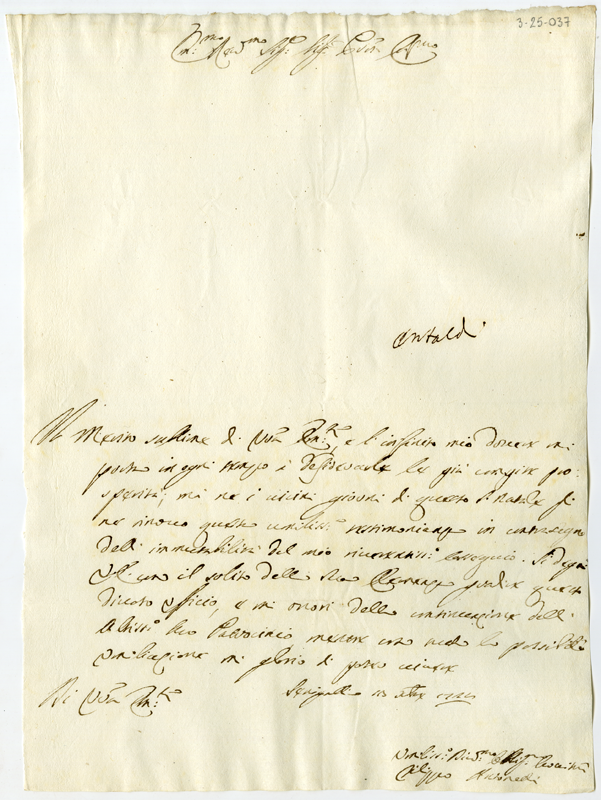 3-25-037
Em.mo Rev.mo Sig.r Sig.r Pron Col.mo
Ontaldi
Il Merito sublime di Vra Em.za, e l'infinito mio dovere mi
porta in ogni tempo à desiderarle le più compite pro-
sperità; mà ne i vicini giorni di questo S. Natale Gle
ne rinovo questa umiliss.a testimonianza in contrasegno
dell'immutabilità del mio riverentiss.o ossequio. Si degni
V.E. con il solito della Sua Clemenza gradire questo
divoto Ufficio, e mi onori della continuazione dell'
Altiss.o Suo Patrocinio mentre con tutta la possibile
umiliazione mi glorio di potere essere
Di Vra Em.za
Umiliss.o Div.mo Oblig.mo Servitore
Filippo